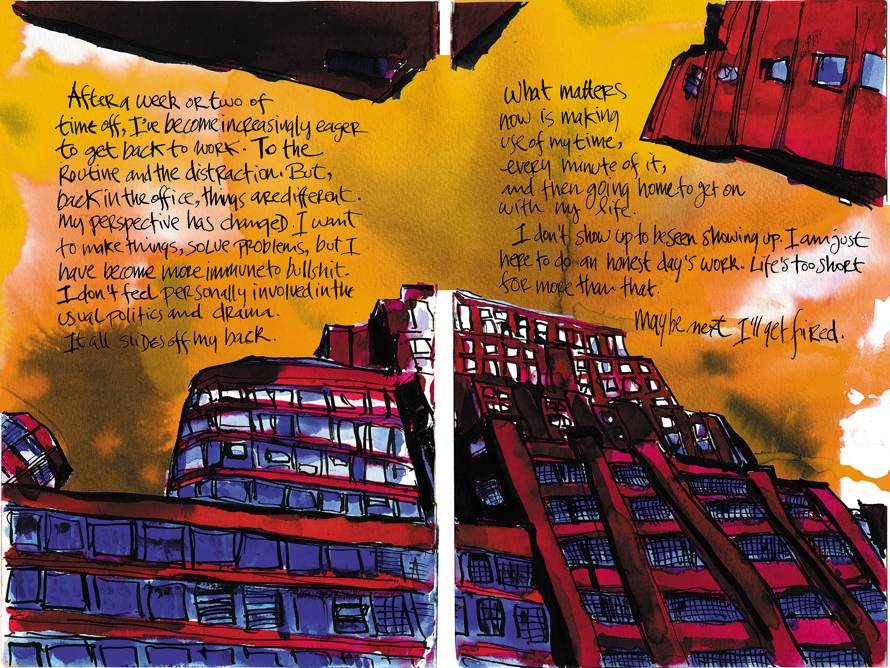 After a week or two of
time off, I've become increasingly eager
to get back to work. To the
Routine and the distraction. But,
back in the office, things are different.
my perspective has changed. I want
to make things, solve problems, but I
have become more immune to bullshit.
I don't feel personally involved in the
usual politics and drama.
It all slides off my back.
What matters
now is making
use of my time,
every minute of it,
and then going home to get on
with my life.
I don't show up to be seen showing up. I am just
here to do an honest day's work. Life's too short
for more than that.
Maybe next I'll get fired.